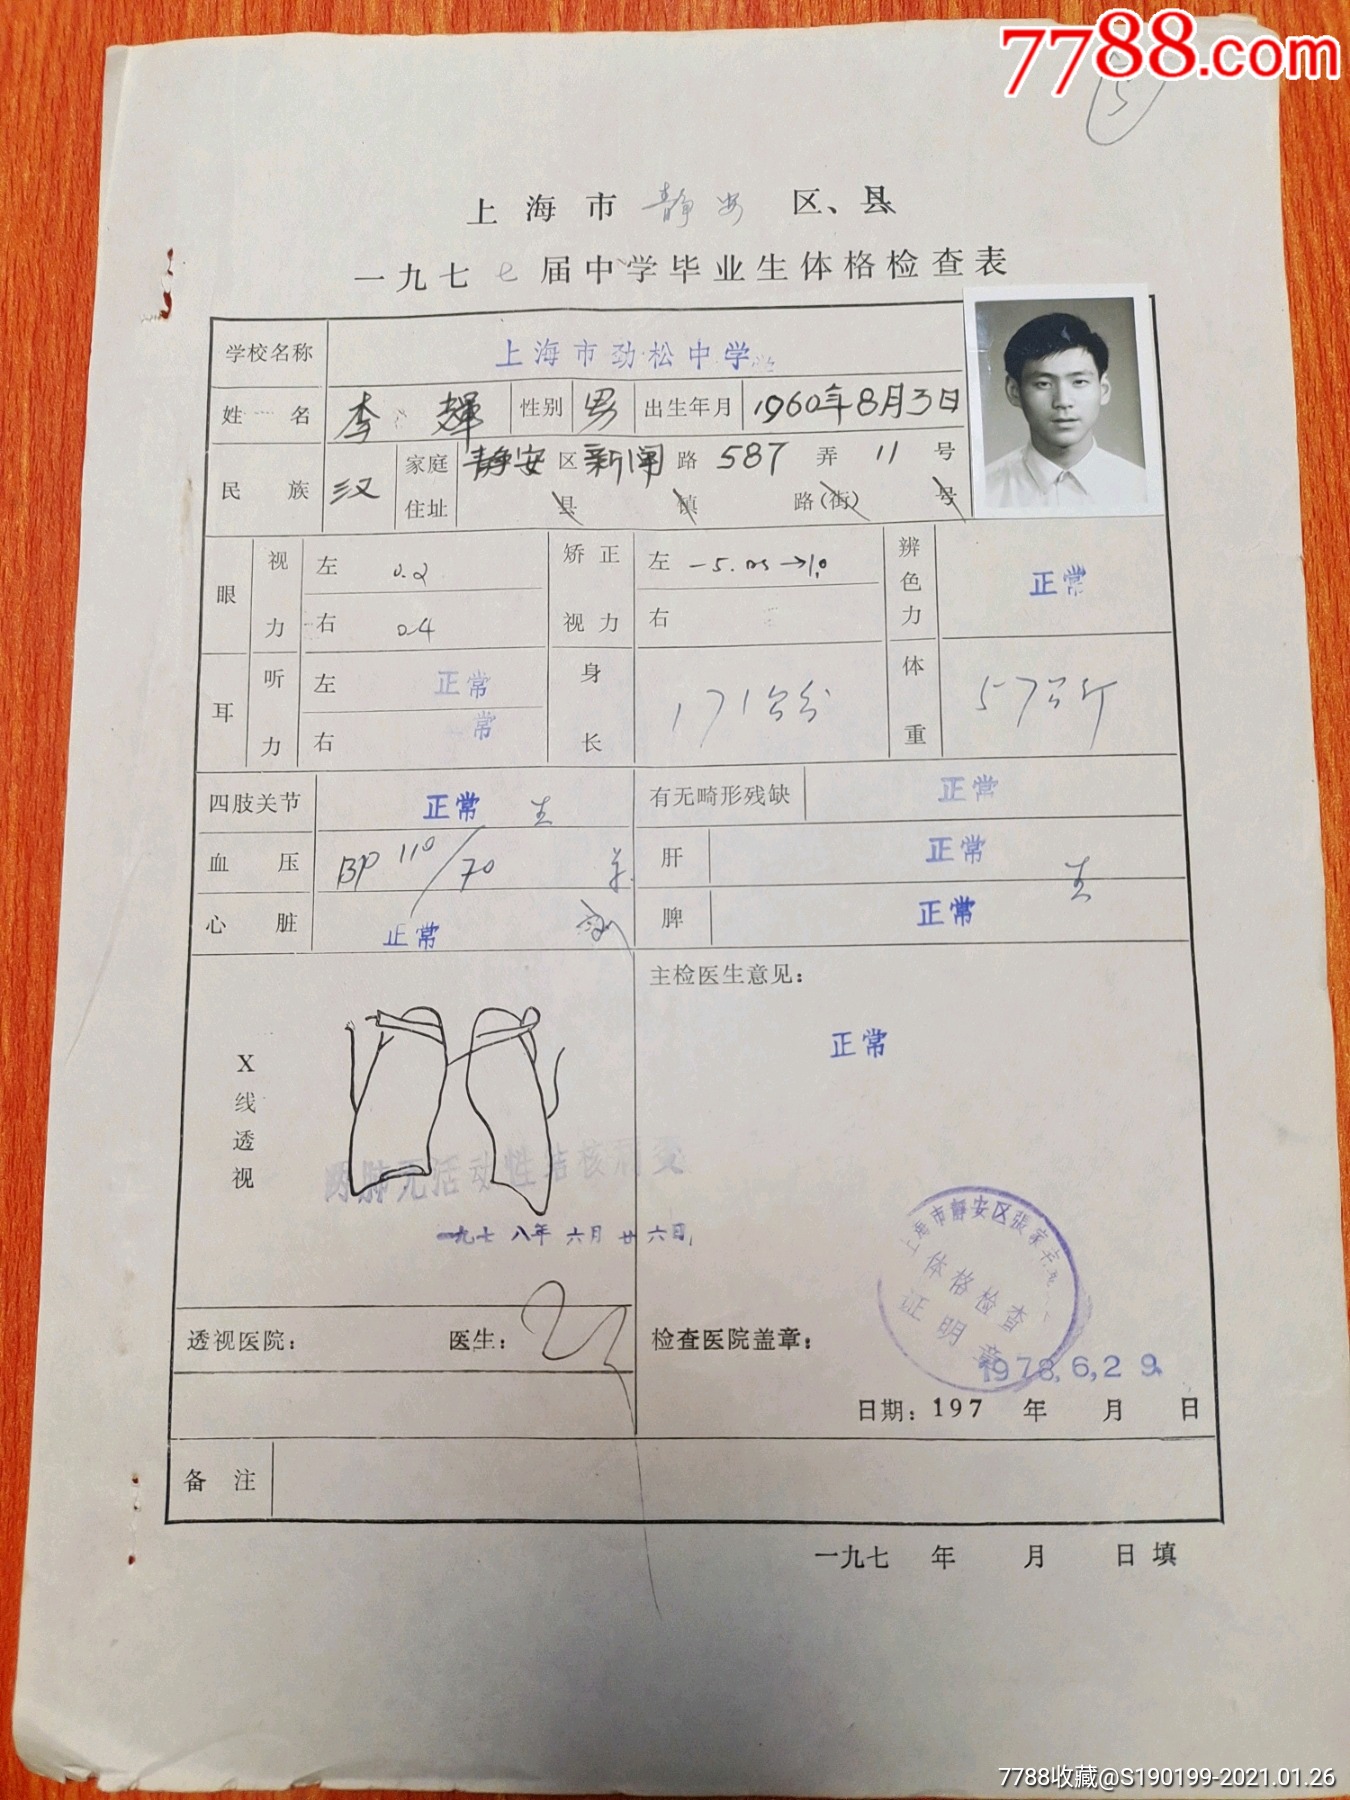 7788.com
5
上海市 静安 区、县
一九七七届中学毕业生体格检查表
学校名称 上海市劲松中学
姓名 李辉 性别 男 出生年月 1960年8月3日
民族 汉 家庭住址 静安区新闸路587弄11号
县 镇 路(街) 号
眼 视力 左 0.2 矫正视力 左 -5.05→1.0 辨色力 正常
右 0.4 右
耳 听力 左 正常 身长 171公分 体重 57公斤
右 常
四肢关节 正常 王 有无畸形残缺 正常
血压 BP 110/70 肝 正常
王
心脏 正常 脾 正常
X线透视 主检医生意见:
正常
两肺无活动性结核病变
一九七八年六月廿六日
海市静安区张家
体格检查
证明章
透视医院: 医生: 检查医院盖章:
1978,6,29
日期:197 年 月 日
备注
一九七 年 月 日填
7788收藏@S190199-2021.01.26